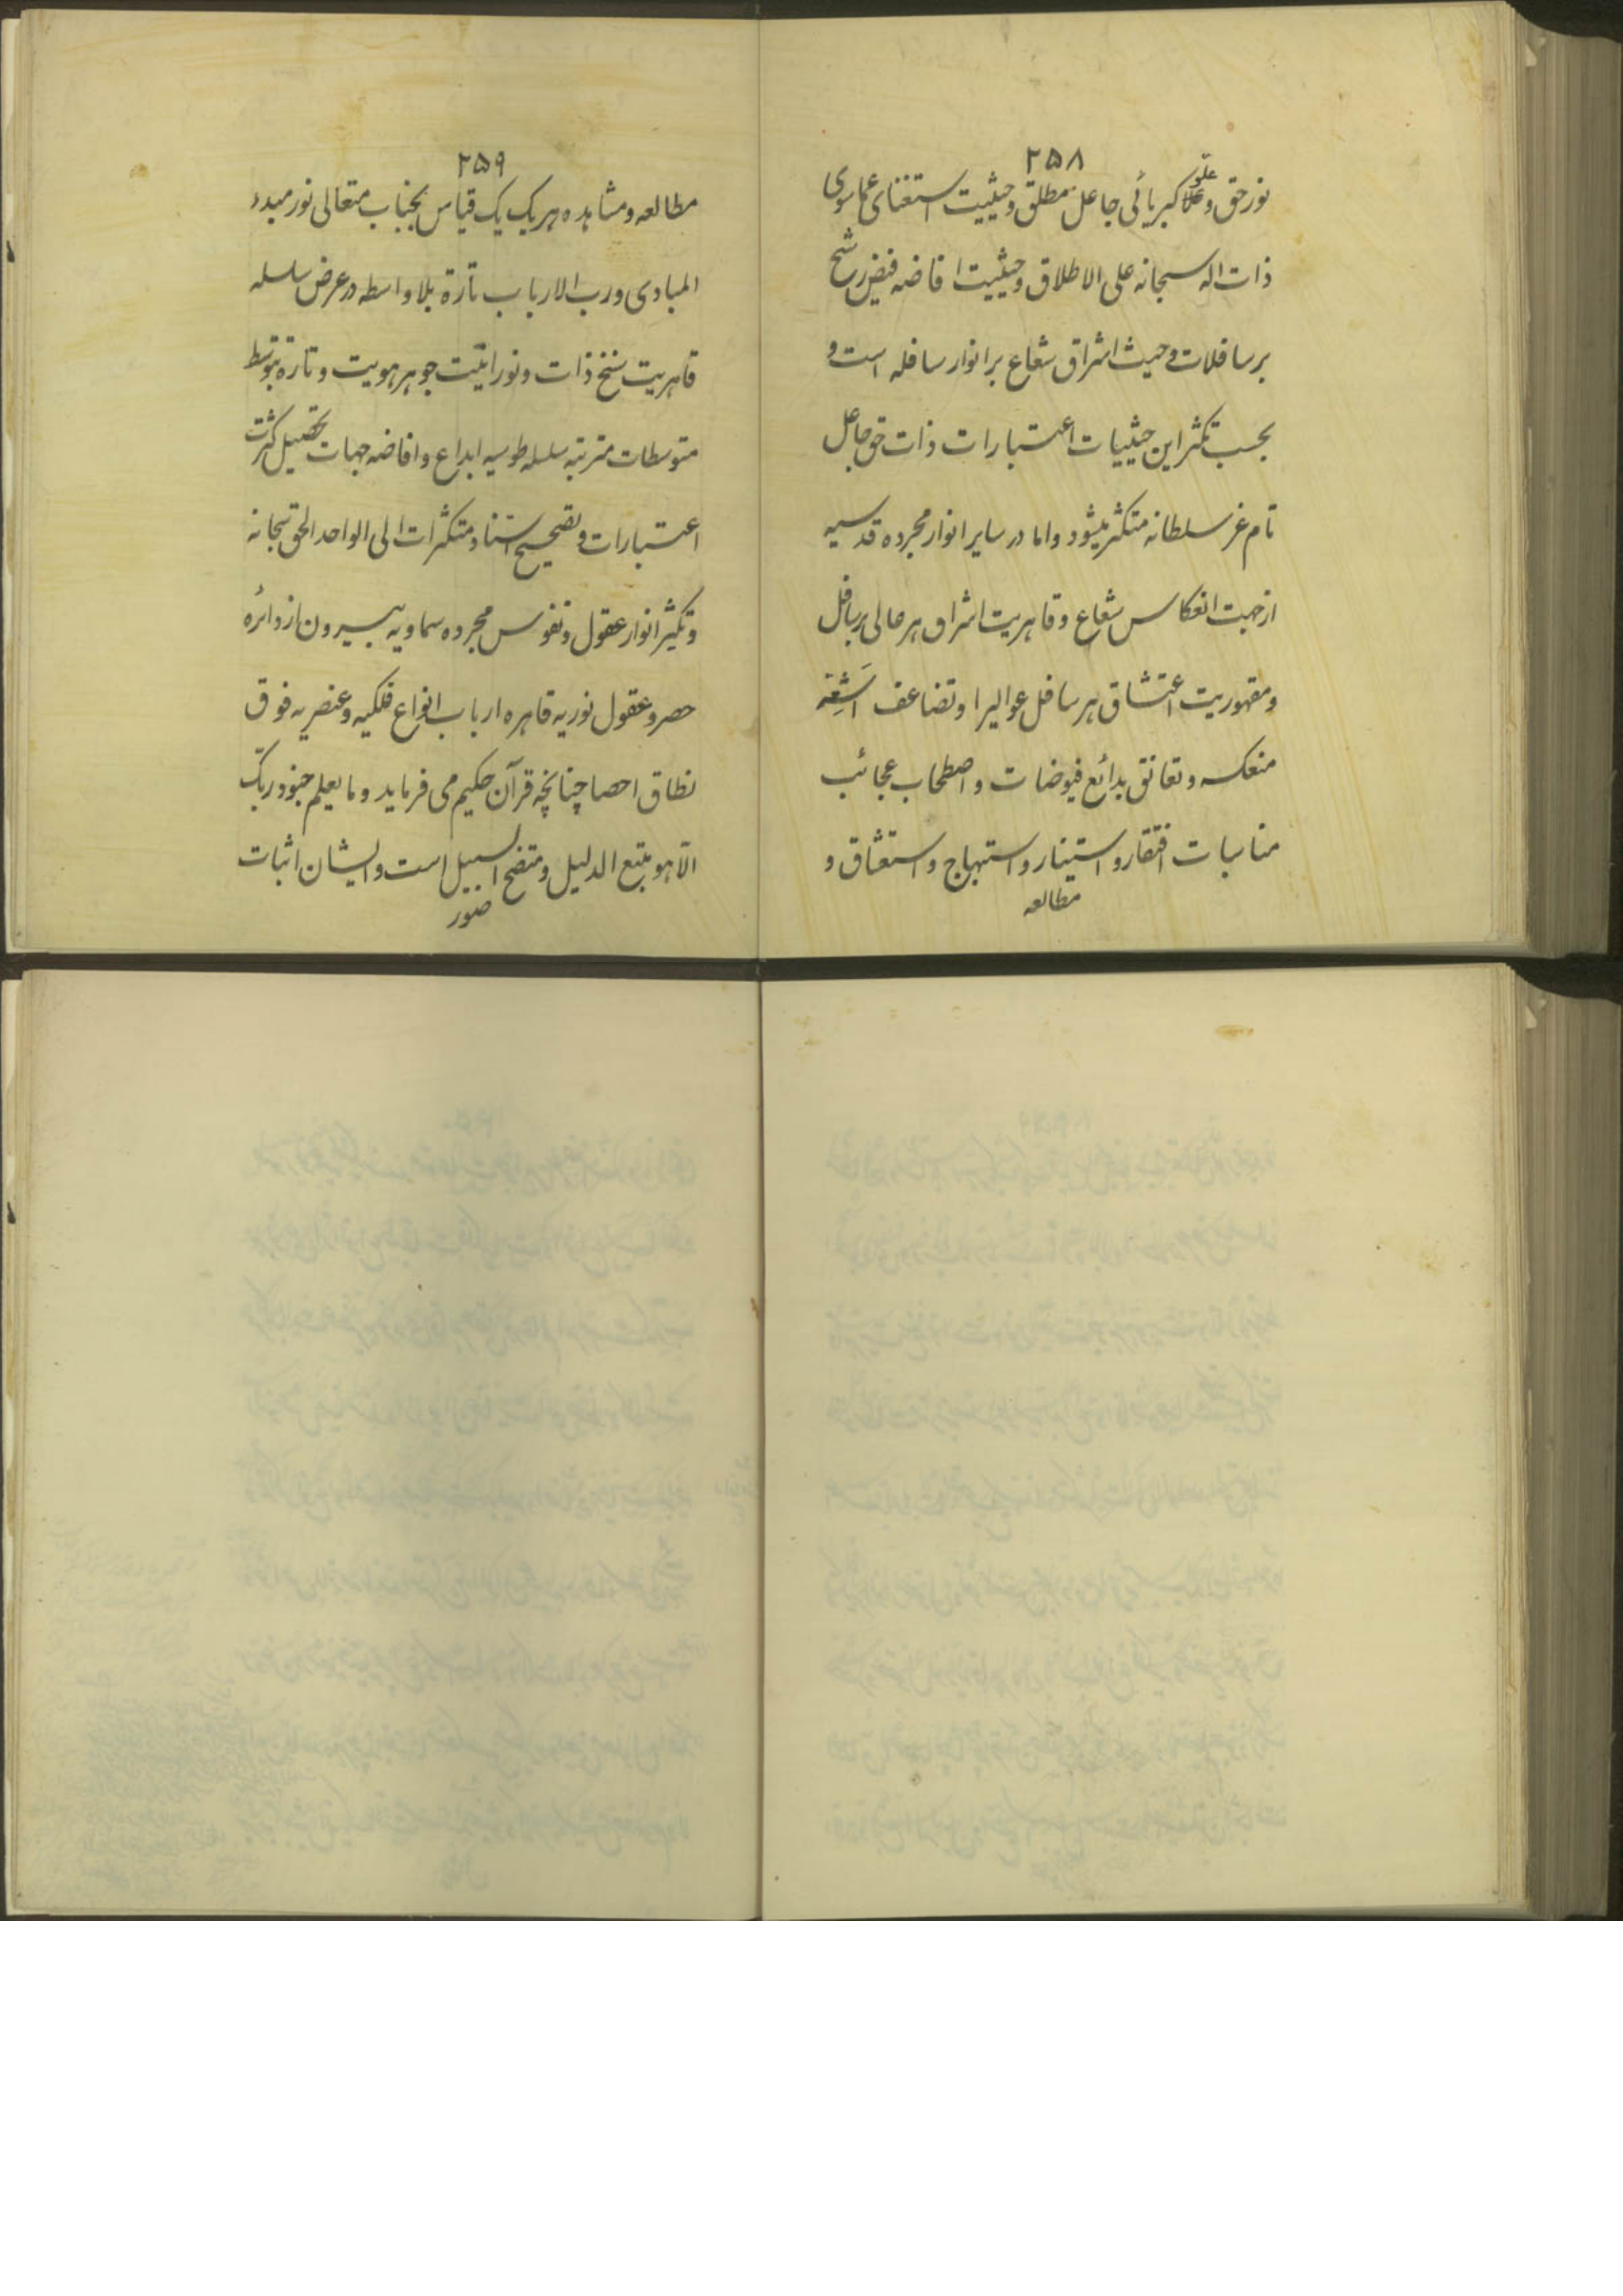 ۲۵۸
علو
نور حق و علا کبریائی جاعل مطلق و حیثیت استغنای عما سوی
ذات اله سبحانه علی الاطلاق و حیثیت افاضه فیض رشح
بر سافلات و حیث اشراق شعاع بر انوار سافله است و
بحسب تکثر این حیثیات اعتبارات ذات حق جاعل
تام عز سلطانه متکثر میشود و اما در سایر انوار مجرده قدسیه
از جهت انعکاس شعاع و قاهریت اشراق هر عالی بر سافل
و مقهوریت اعتشاق هر سافل عوالیرا و تضاعف اشعه
منعکسه و تعانق بدائع فیوضات و اصطحاب عجائب
مناسبات افتقار و استینار و استبهاج و استعشاق و
مطالعه
۲۵۹
مطالعه و مشاهده هر یک یک قیاس بجناب متعالی نور مبدء
المبادی و رب الارباب تارة بلا واسطه در عرض سلسله
قاهریت سنخ ذات و نورانیّت جوهر هویت و تارة بتوسّط
متوسطات مترتبه سلسله طولیه ابداع و افاضه جهات تحصیل کثرت
اعتبارات و تصحیح استناد متکثرات الی الواحد الحق سبحانه
و تکثیر انوار عقول و نفوس مجرده سماویه بیرون از دائره
حصر و عقول نوریه قاهره ارباب انواع فلکیه و عنصریه فوق
نطاق احصا چنانچه قرآن حکیم می فرماید و ما یعلم جنود ربّک
الّا هو متبع الدلیل و متضح السبیل است و ایشان اثبات
صور